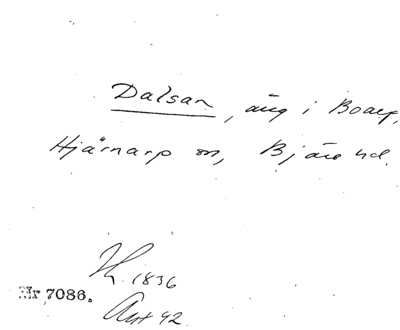 Dalsan, äng i Boarp,
Hjärnarp sn, Bjäre hd.
1836
Nr 7086.
42